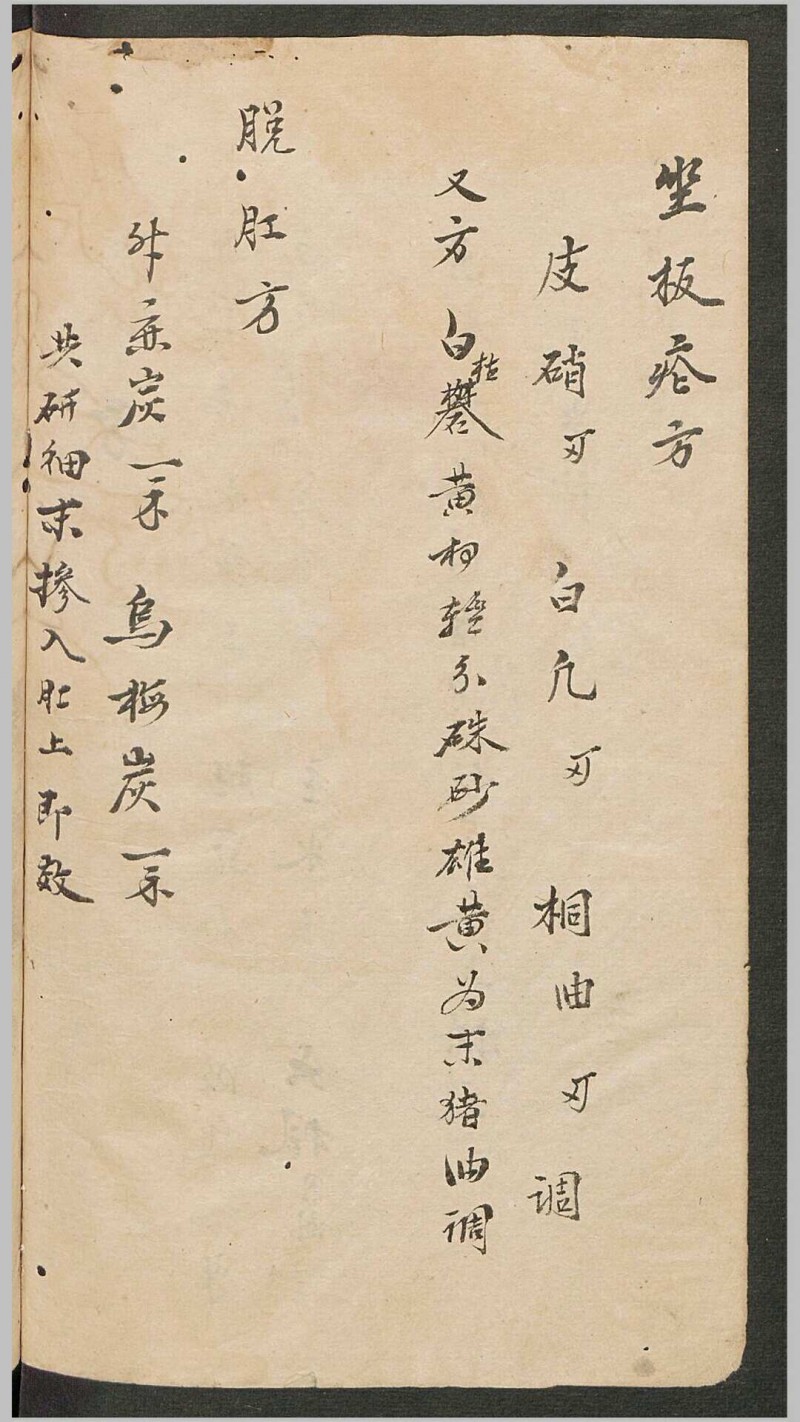 坐板疮方
皮硝刄 白凡刄 桐油刄 调
又方 白枯礬黄柏轻分硃砂雄黄为末猪油调
脱肛方
升麻炭一 烏梅炭一
共研細末掺入肛上即效